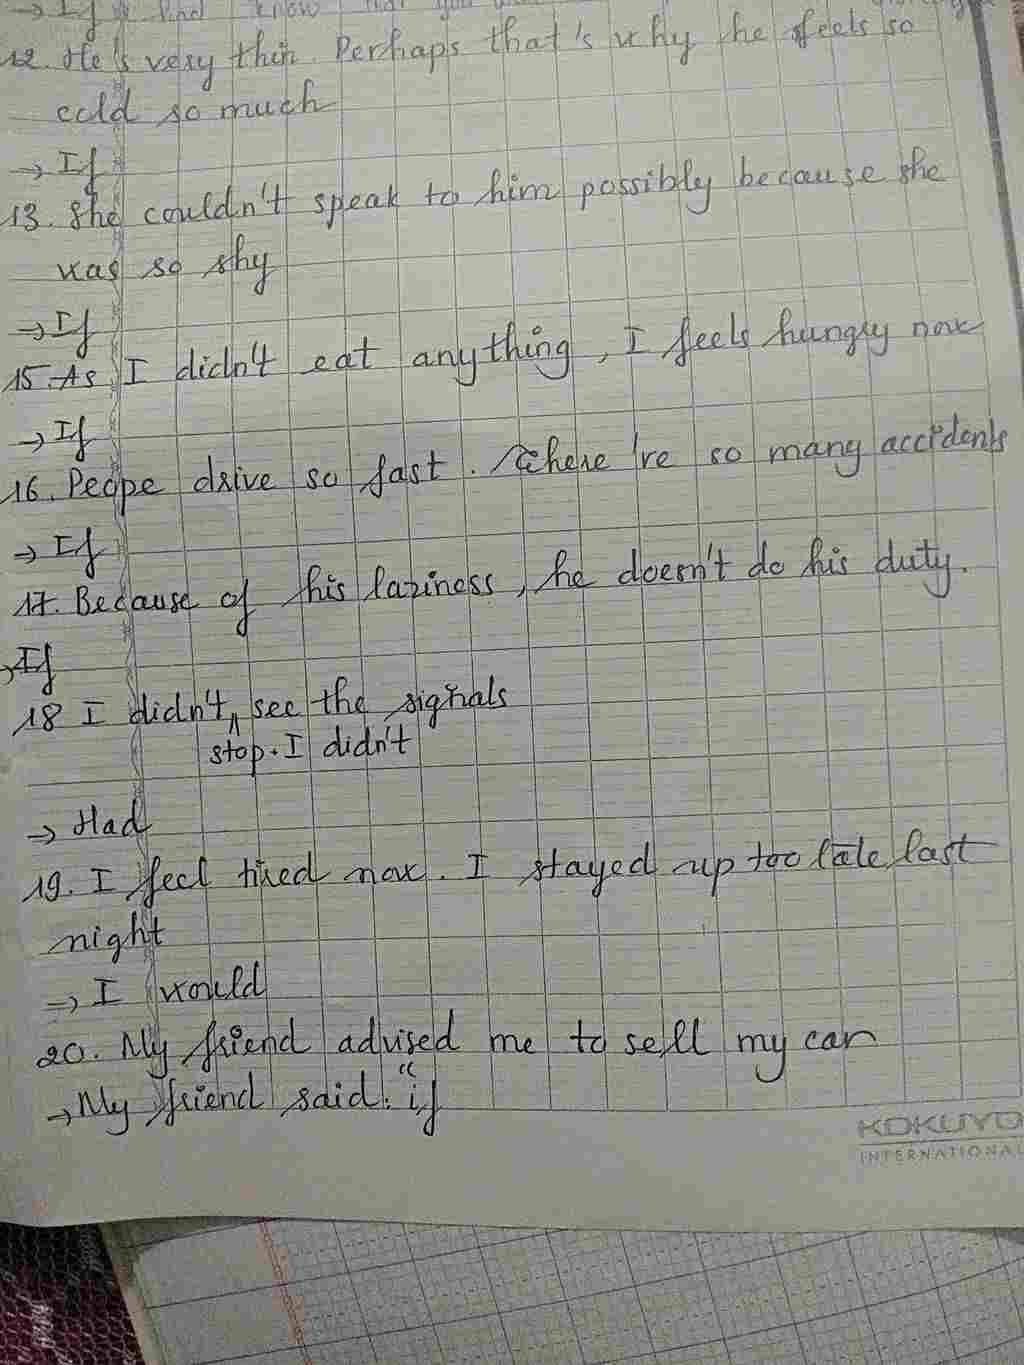 → If I had know that you
12. He's very thin. Perhaps that's why he feels so
cold so much
→ If
13. She couldn't speak to him possibly because she
was so shy
→ If
15. As I didn't eat anything, I feels hungry now
→ If
16. Peope drive so fast. There 're so many accidents
→ If
17. Because of his laziness, he doesn't do his duty.
→ If
18 I didn't, see the signals
stop. I didn't
→ Had
19. I feel tired now. I stayed up too late last
night
→ I would
20. My friend advised me to sell my car
→ My friend said: "if
KOKUYO
INTERNATIONAL